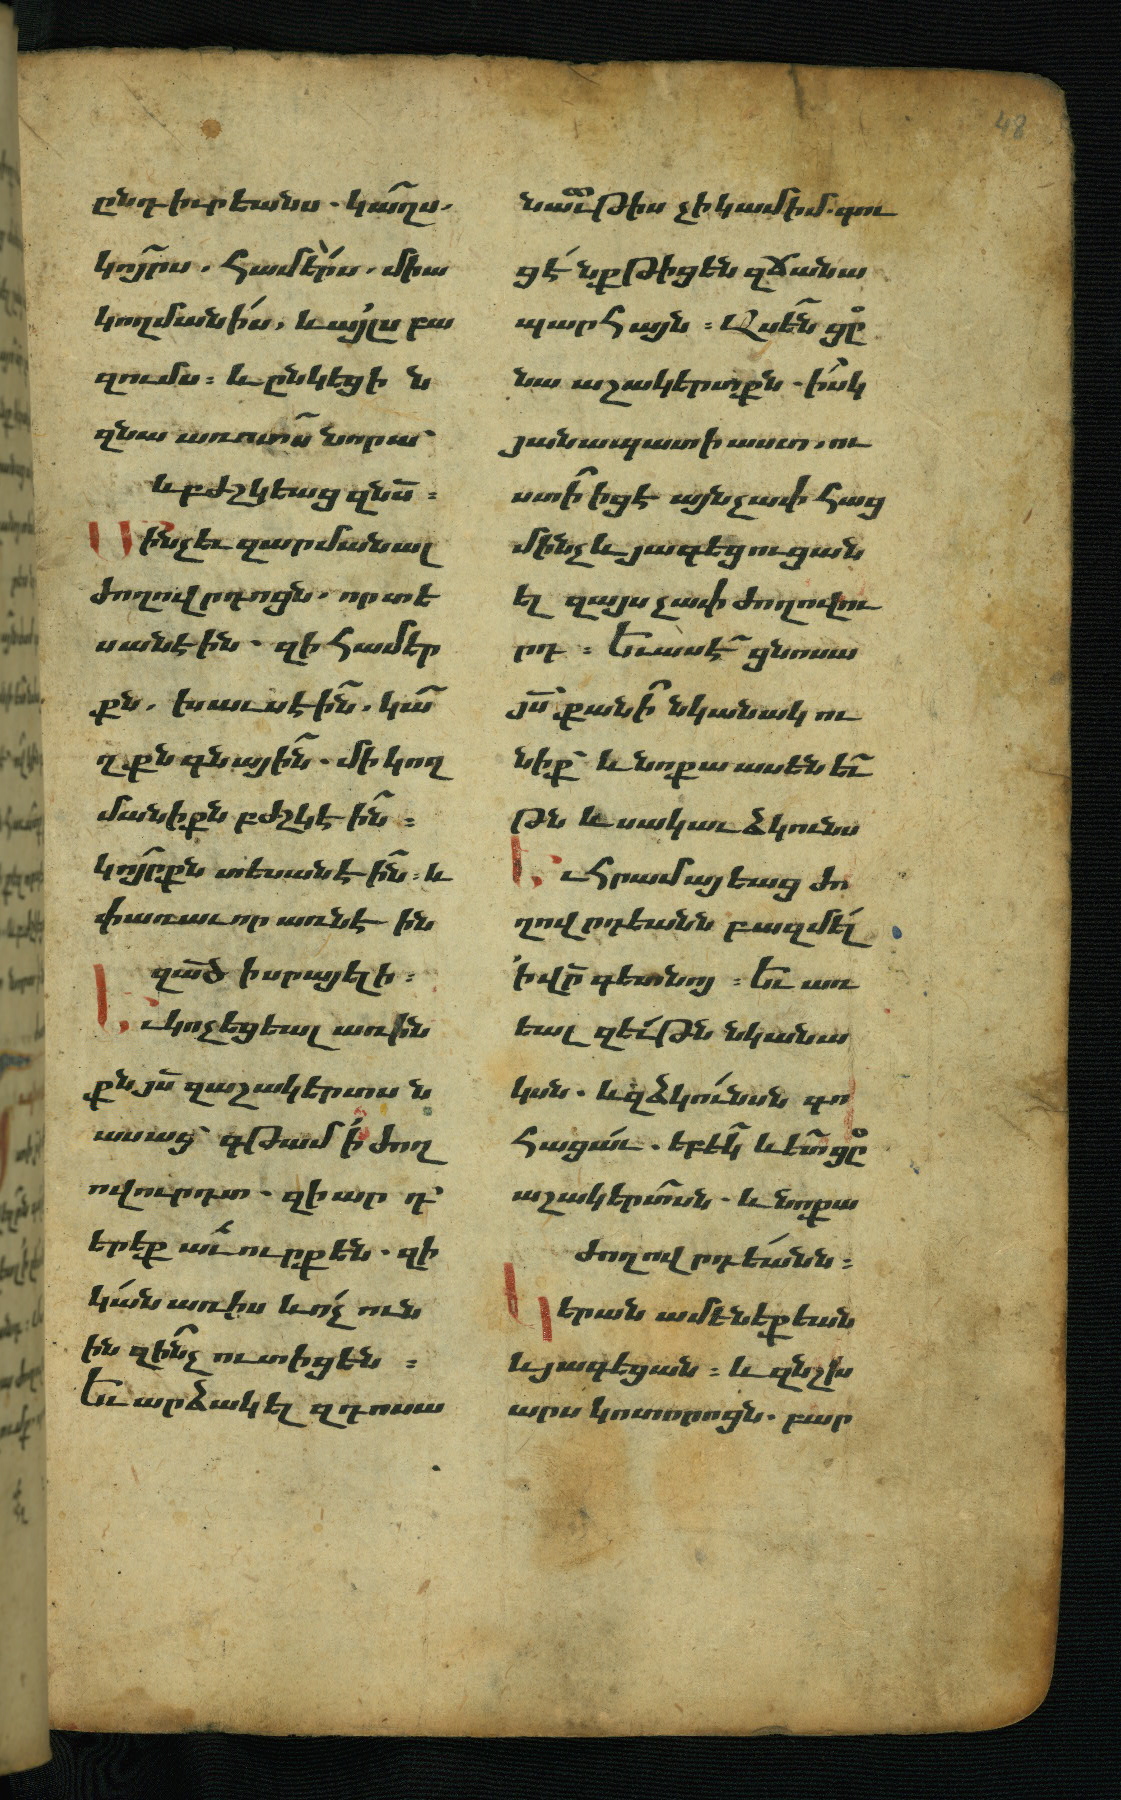 48
ընդ իւրեանս. կա՜ղս.
կո՜յրս. համե՛րս. միա
կողմանի՛ս. և ա՛յլս բա
զումս։ և ընկեցի ն
զնա առ ոտս̃ նորա՝
և բժշկեաց զնս̃։
Մինչև զարմանալ
ժողովրդոցն. որ տե
սանէին. զի համեր
քն. խաւսէի՜ն. կա՜
ղքն գնայի՜ն. մի կող
մանիքն բժշկէի՜ն։
կո՜յրքն տեսանէի՜ն։ և
փառաւոր առնէ ին
զա̃ծ իսրայելի։
Եւ կոչեցեալ առ ին
քն յս̃ զաշակերտս ն
ասաց՝ գթամ ի՛ ժող
ովուրդտ. զի ար դ՝
երեք աւ՛ուրք են. զի
կա՛ն առ իս և ո՛չ ուն
ին զի՜նչ ուտիցեն ։
Եւ արձակել զդոսա
նաւ̃թիս չի կամիմ. գու
ցէ՛ նքթիցեն զճանա
պարհայն։ Ասե՜ն ցը̊
նա աշակերտքն. ի՜սկ
յանապատի աստ. ու
ստի՜ իցէ այնչափ հաց
մինչև յագեցուցան
ել զայս չափ ժողովու
րդ ։ Եւ ասէ՜ ցնոսա
յս̃ քանի՜ նկանակ ու
նիք՝ և նոքա ասեն եւ̃
թն և սակաւ ձկունս
Եւ հրամայեաց ժո
ղովրդեանն բազմե՛լ
՚ի վր̃ գետնոյ ։ Եւ առ
եալ զեւ՛թն նկանա
կսն. և զձկո՛ւնսն գո
հացա՛ւ. եբե՜կ և ե՜տ ցը̊
աշակերտ̃սն. և նոքա
ժողովրդե՛անն։
Կերան ամենեքեան
և յագեցան։ և զնշխ
արս կոտորոցն. բար